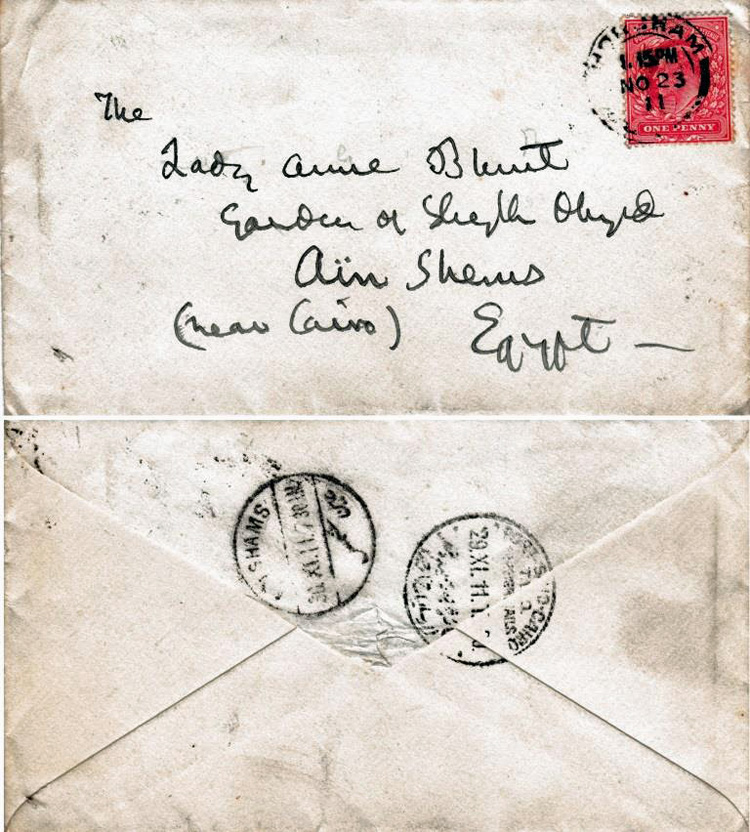 HAM
1.15PM
NO 23
11
ONE PENNY
The
Lady Anne Blunt
Garden of Sheykh Obeyd
Aïn Shems
(near Cairo)
Egypt —
SHAMS
30.XI.11
شمس
PORT SAID-CAIRO
29.XI.11